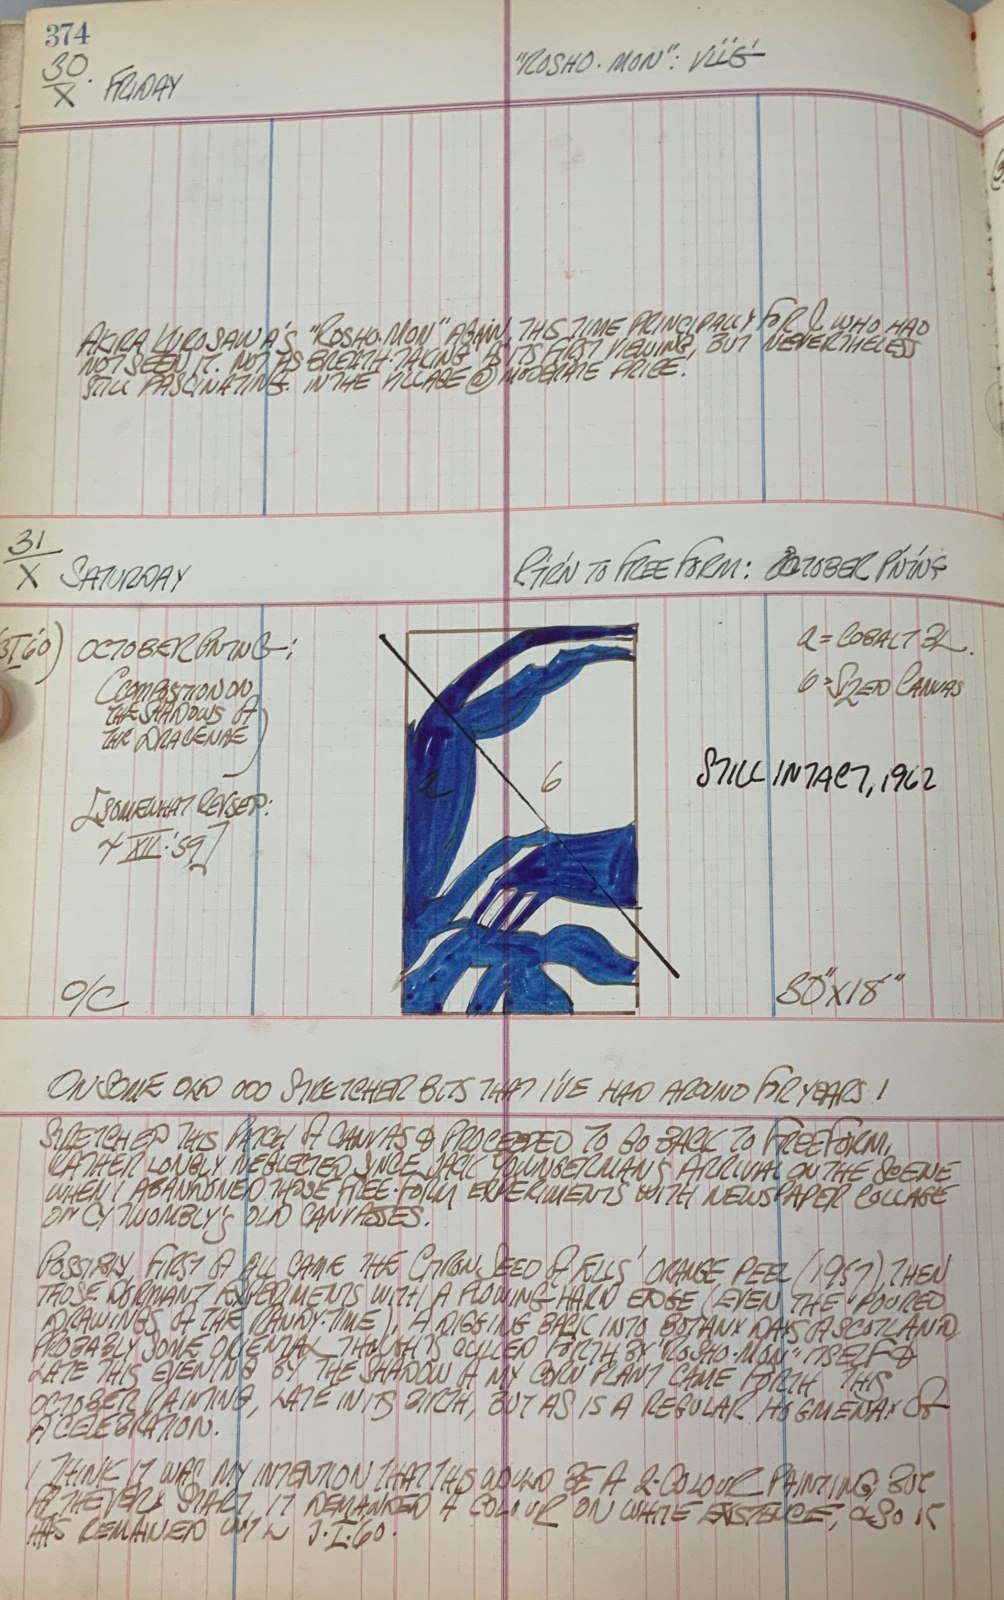 374
30
X FRIDAY
"ROSHO-MON": VILLG
AKIRA KUROSAWA'S "ROSHO-MON" AGAIN, THIS TIME PRINCIPALLY FOR C WHO HAD
NOT SEEN IT. NOT AS BREATH-TAKING AS ITS FIRST VIEWING, BUT NEVERTHELESS
STILL FASCINATING. IN THE VILLAGE @ MODERATE PRICE.
31
X SATURDAY
R'T'RN TO FREE FORM: OCTOBER P'NT'NG
(3 I '60) OCTOBER PNTNG:
(COMPOSITION ON
THE SHADOWS OF
THE DRACENAE)
[SOMEWHAT REVISED:
4 XII '59]
a = COBALT BL.
b = SIZED CANVAS
a
b
STILL INTACT, 1962
O/C
30" X 18"
ON SOME OLD ODD STRETCHER BITS THAT I'VE HAD AROUND FOR YEARS!
STRETCHED THIS PATCH OF CANVAS & PROCEEDED TO GO BACK TO FREE FORM,
RATHER LONGLY NEGLECTED SINCE JACK YOUNGERMAN'S ARRIVAL ON THE SCENE
WHEN I ABANDONED THOSE FREE-FORM EXPERIMENTS WITH NEWSPAPER COLLAGE
ON CY TWOMBLY'S OLD CANVASSES.
POSSIBLY FIRST OF ALL CAME THE CITRON SEED OF ELLS' ORANGE PEEL (1957), THEN
THOSE DORMANT EXPERIMENTS WITH A FLOWING HARD EDGE (EVEN THE "POURED
DRAWINGS OF THE RANDY-TIME), A DIGGING BACK INTO BOTANY DAYS OF SCOTLAND,
PROBABLY SOME ORIENTAL THOUGHTS CULLED FORTH BY "ROSHO-MON" ITSELF &
LATE THIS EVENING BY THE SHADOW OF MY CORN PLANT CAME FORTH THIS
OCTOBER PAINTING, LATE IN ITS BIRTH, BUT AS IS A REGULAR HOGMENAY OF
A CELEBRATION.
I THINK IT WAS MY INTENTION THAT THIS WOULD BE A 2-COLOUR PAINTING, BUT
AT THE VERY START, IT DEMANDED A COLOUR ON WHITE EXISTENCE, & SO IT
HAS REMAINED UNTIL 3·I·60.